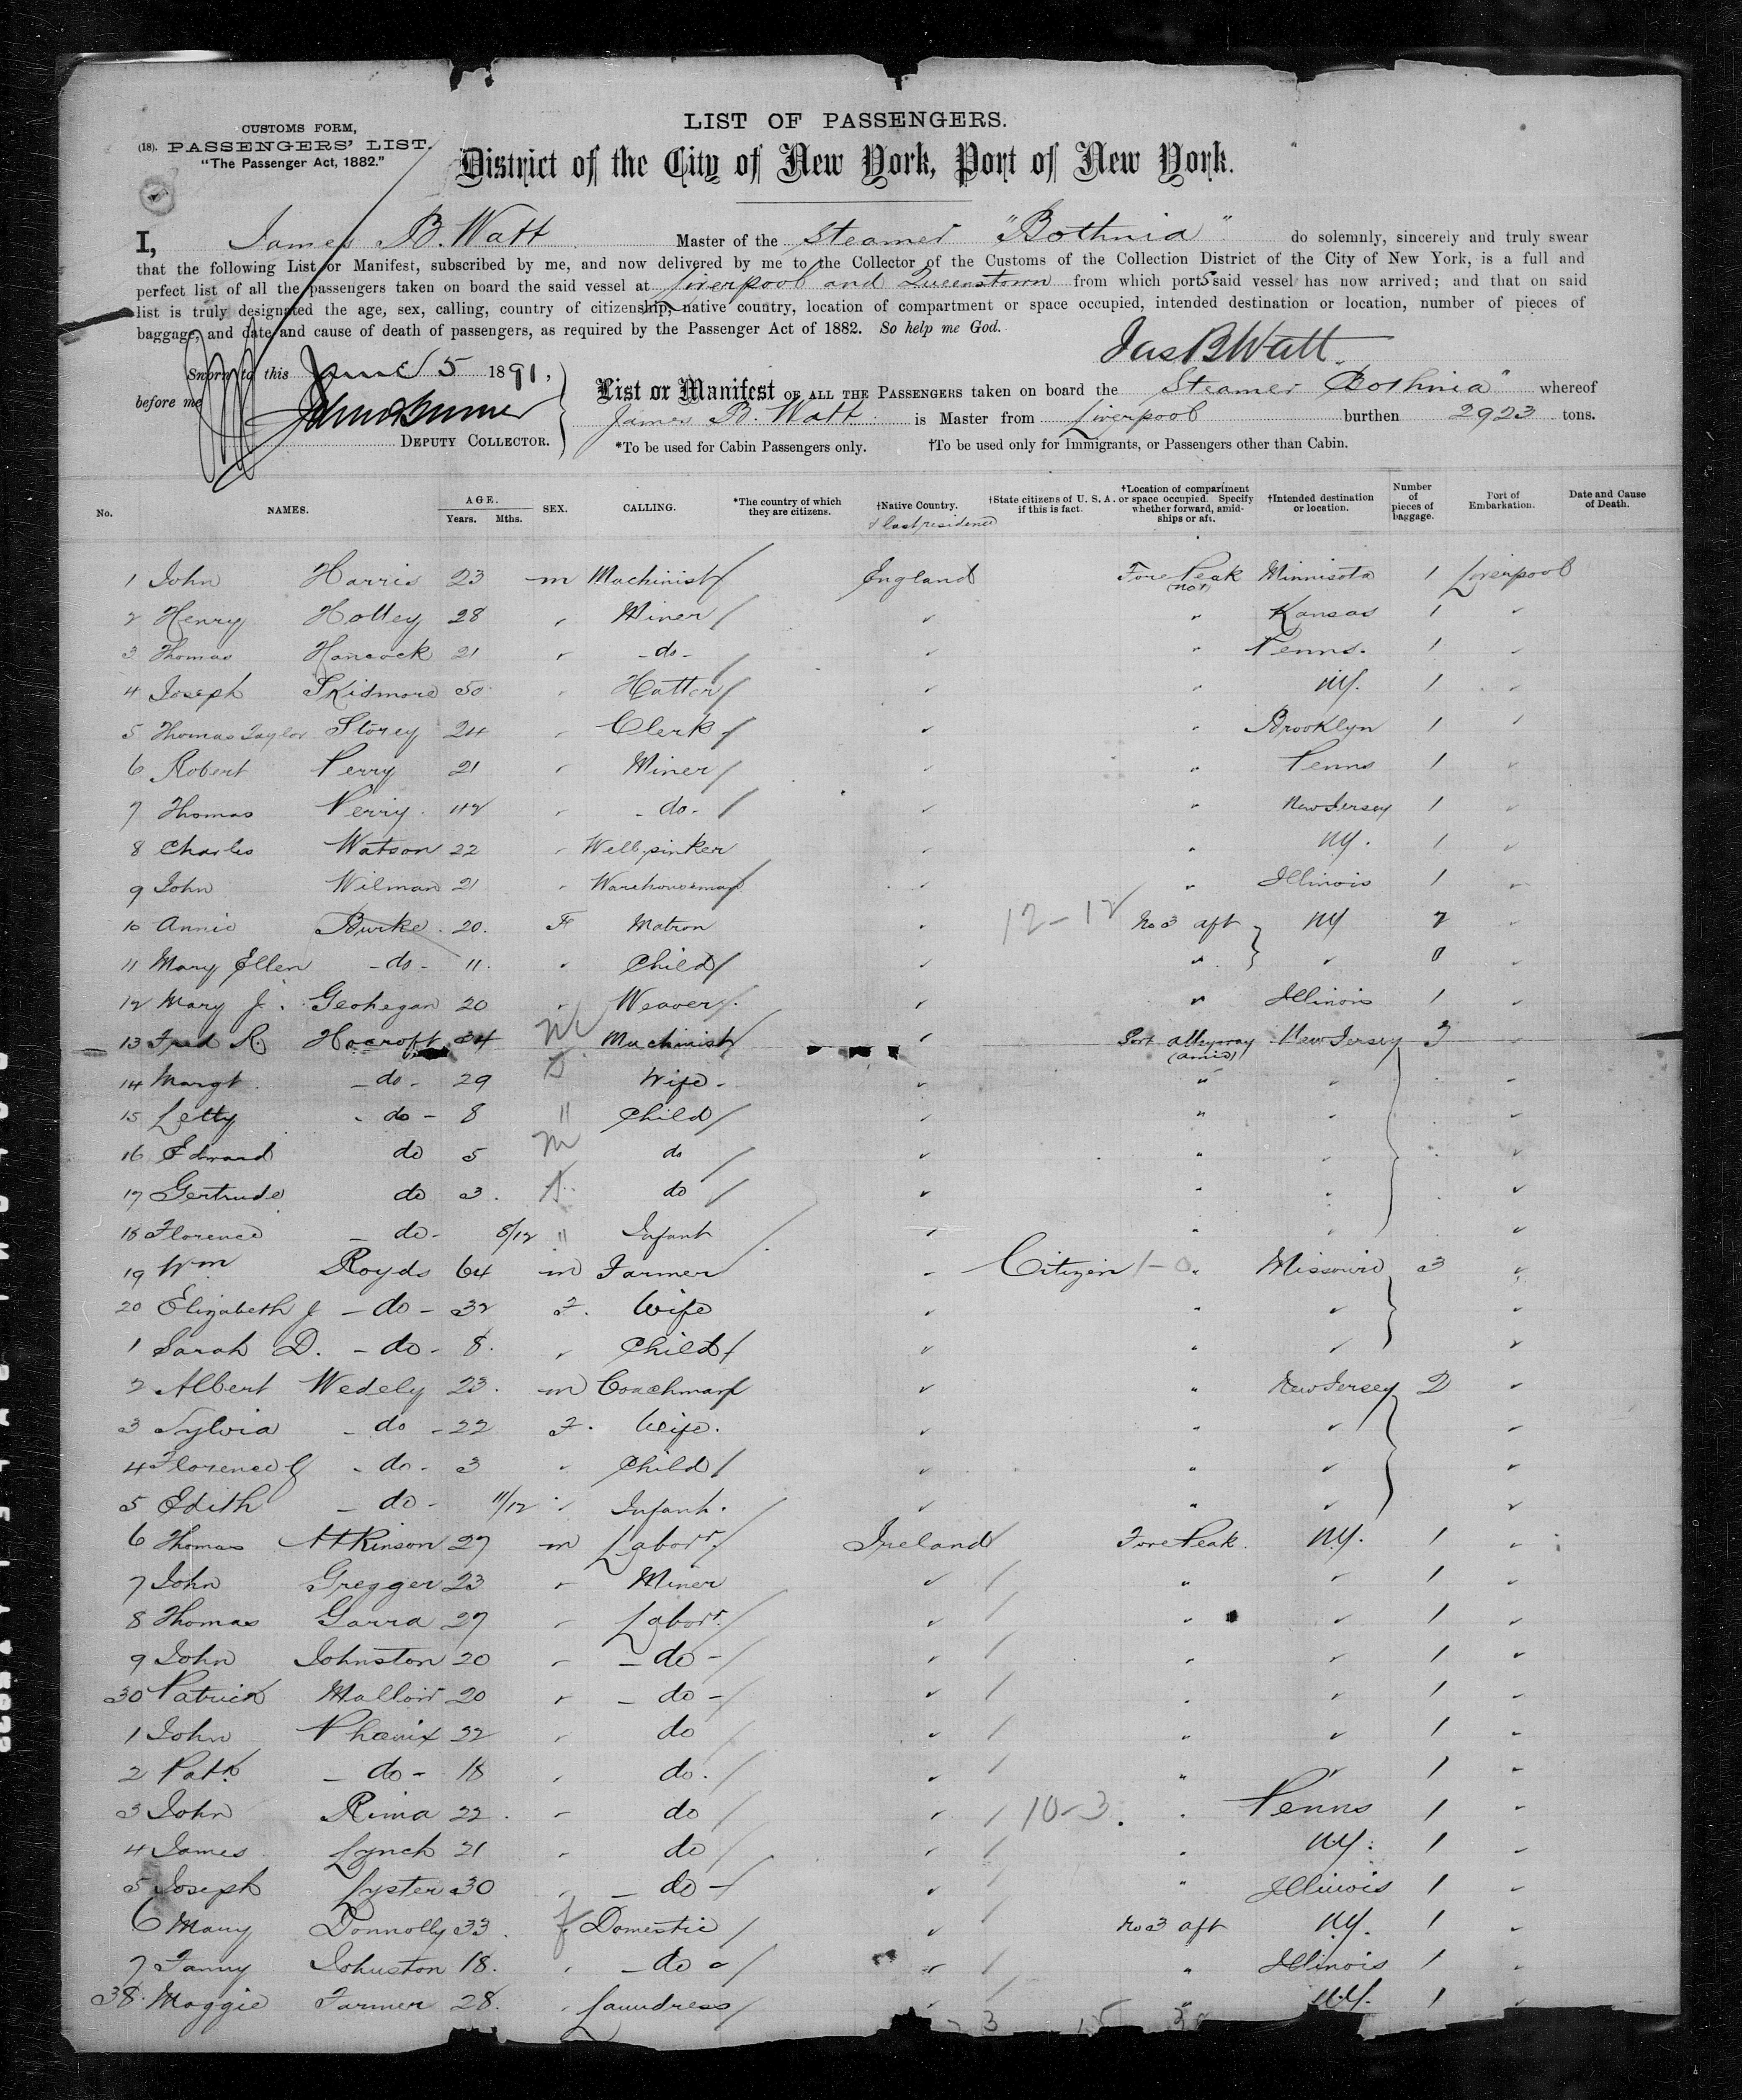 CUSTOMS FORM,
(18). PASSENGERS' LIST.
"The Passenger Act, 1882."
LIST OF PASSENGERS.
District of the City of New York, Port of New York.
I, James B. Watt Master of the Steamer "Bothnia" do solemnly, sincerely and truly swear
that the following List or Manifest, subscribed by me, and now delivered by me to the Collector of the Customs of the Collection District of the City of New York, is a full and
perfect list of all the passengers taken on board the said vessel at Liverpool and Queenstown from which ports said vessel has now arrived; and that on said
list is truly designated the age, sex, calling, country of citizenship, native country, location of compartment or space occupied, intended destination or location, number of pieces of
baggage, and date and cause of death of passengers, as required by the Passenger Act of 1882. So help me God.
Jas B Watt.
Sworn to this June 5 1891,
before me
DEPUTY COLLECTOR.
List or Manifest OF ALL THE PASSENGERS taken on board the Steamer Bothnia" whereof
James B. Watt is Master from Liverpool burthen 2923 tons.
*To be used for Cabin Passengers only. †To be used only for Immigrants, or Passengers other than Cabin.
No. NAMES. AGE. Years. Mths. SEX. CALLING. *The country of which they are citizens. †Native Country. & last residence †State citizens of U. S. A. if this is fact. †Location of compartment or space occupied. Specify whether forward, amidships or aft. †Intended destination or location. Number of pieces of baggage. Port of Embarkation. Date and Cause of Death.
1 John Harris 23 m Machinist England Fore Peak (no 1) Minnisota 1 Liverpool
2 Henry Holley 28 " Miner Kansas 1
3 Thomas Hancock 21 " -do- " Penns. 1
4 Joseph Skidmore 50 " Hatter " NY. 1
5 Thomas Taylor Storey 24 " Clerk " Brooklyn 1
6 Robert Perry 21 " Miner " Penns 1
7 Thomas Perry 42 " -do- " New Jersey 1
8 Charles Watson 22 " Well sinker " NY. 1
9 John Wilman 21 " Warehouseman " Illinois 1
10 Annie Burke 20. F Matron 12-12 No 3 aft NY 2
11 Mary Ellen -do- 11. " Child " " 0
12 Mary J. Geohegan 20 " Weaver " Illinois 1
13 Fred R. Hocroft 34 M Machinist Port Alleyway (amid) New Jersey 3
14 Margt. -do- 29 F Wife - " "
15 Letty -do- 8 " Child " "
16 Edward do 5 M do " "
17 Gertrude do 3. F. do " "
18 Florence -do- 8/12 " Infant " "
19 Wm Royds 64 m Farmer Citizen 1-0 " Missouri 3
20 Elizabeth J -do- 32 F. Wife " "
1 Sarah D. -do- 8. " Child " "
2 Albert Wedely 23. m Coachman " New Jersey 2
3 Sylvia -do- 22 F. Wife. " "
4 Florence G -do- 3 " Child " "
5 Edith -do- 11/12 " Infant. " "
6 Thomas Atkinson 27 m Labor. Ireland Fore Peak. NY. 1
7 John Gregger 23 " Miner " " 1
8 Thomas Garra 27 " Labor. " " 1
9 John Johnston 20 " -do- " " 1
30 Patrick Mallon 20 " -do- " " 1
1 John Phoenix 22 " do " " 1
2 Patk. -do- 18 " do. " " 1
3 John Rima 22. " do 10-3. " Penns 1
4 James Lynch 21 " do " NY. 1
5 Joseph Lyster 30 " -do- " Illinois 1
6 Mary Donnolly 33. f Domestic No 3 aft NY. 1
7 Fanny Johnston 18. " -do- " Illinois 1
38. Maggie Farmer 28. " Laundress " NY. 1